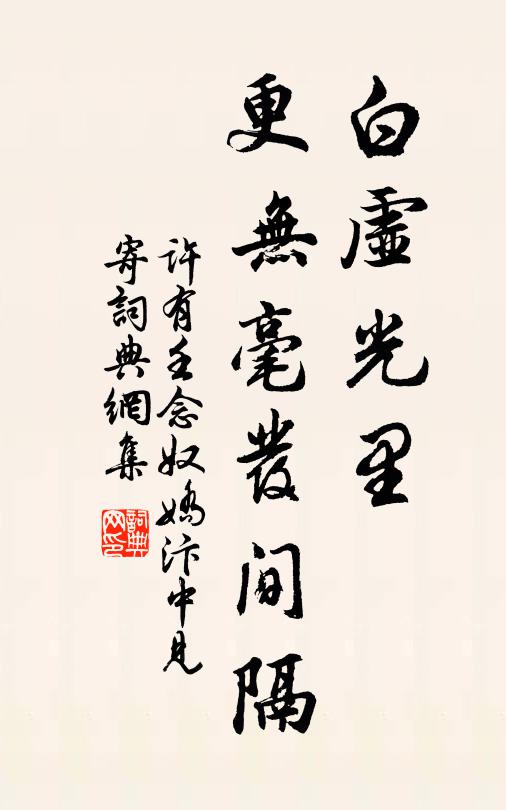 白虛光里
更無毫發间隔
許有壬念奴嬌汴中見
寄詞典網集
詞典网印